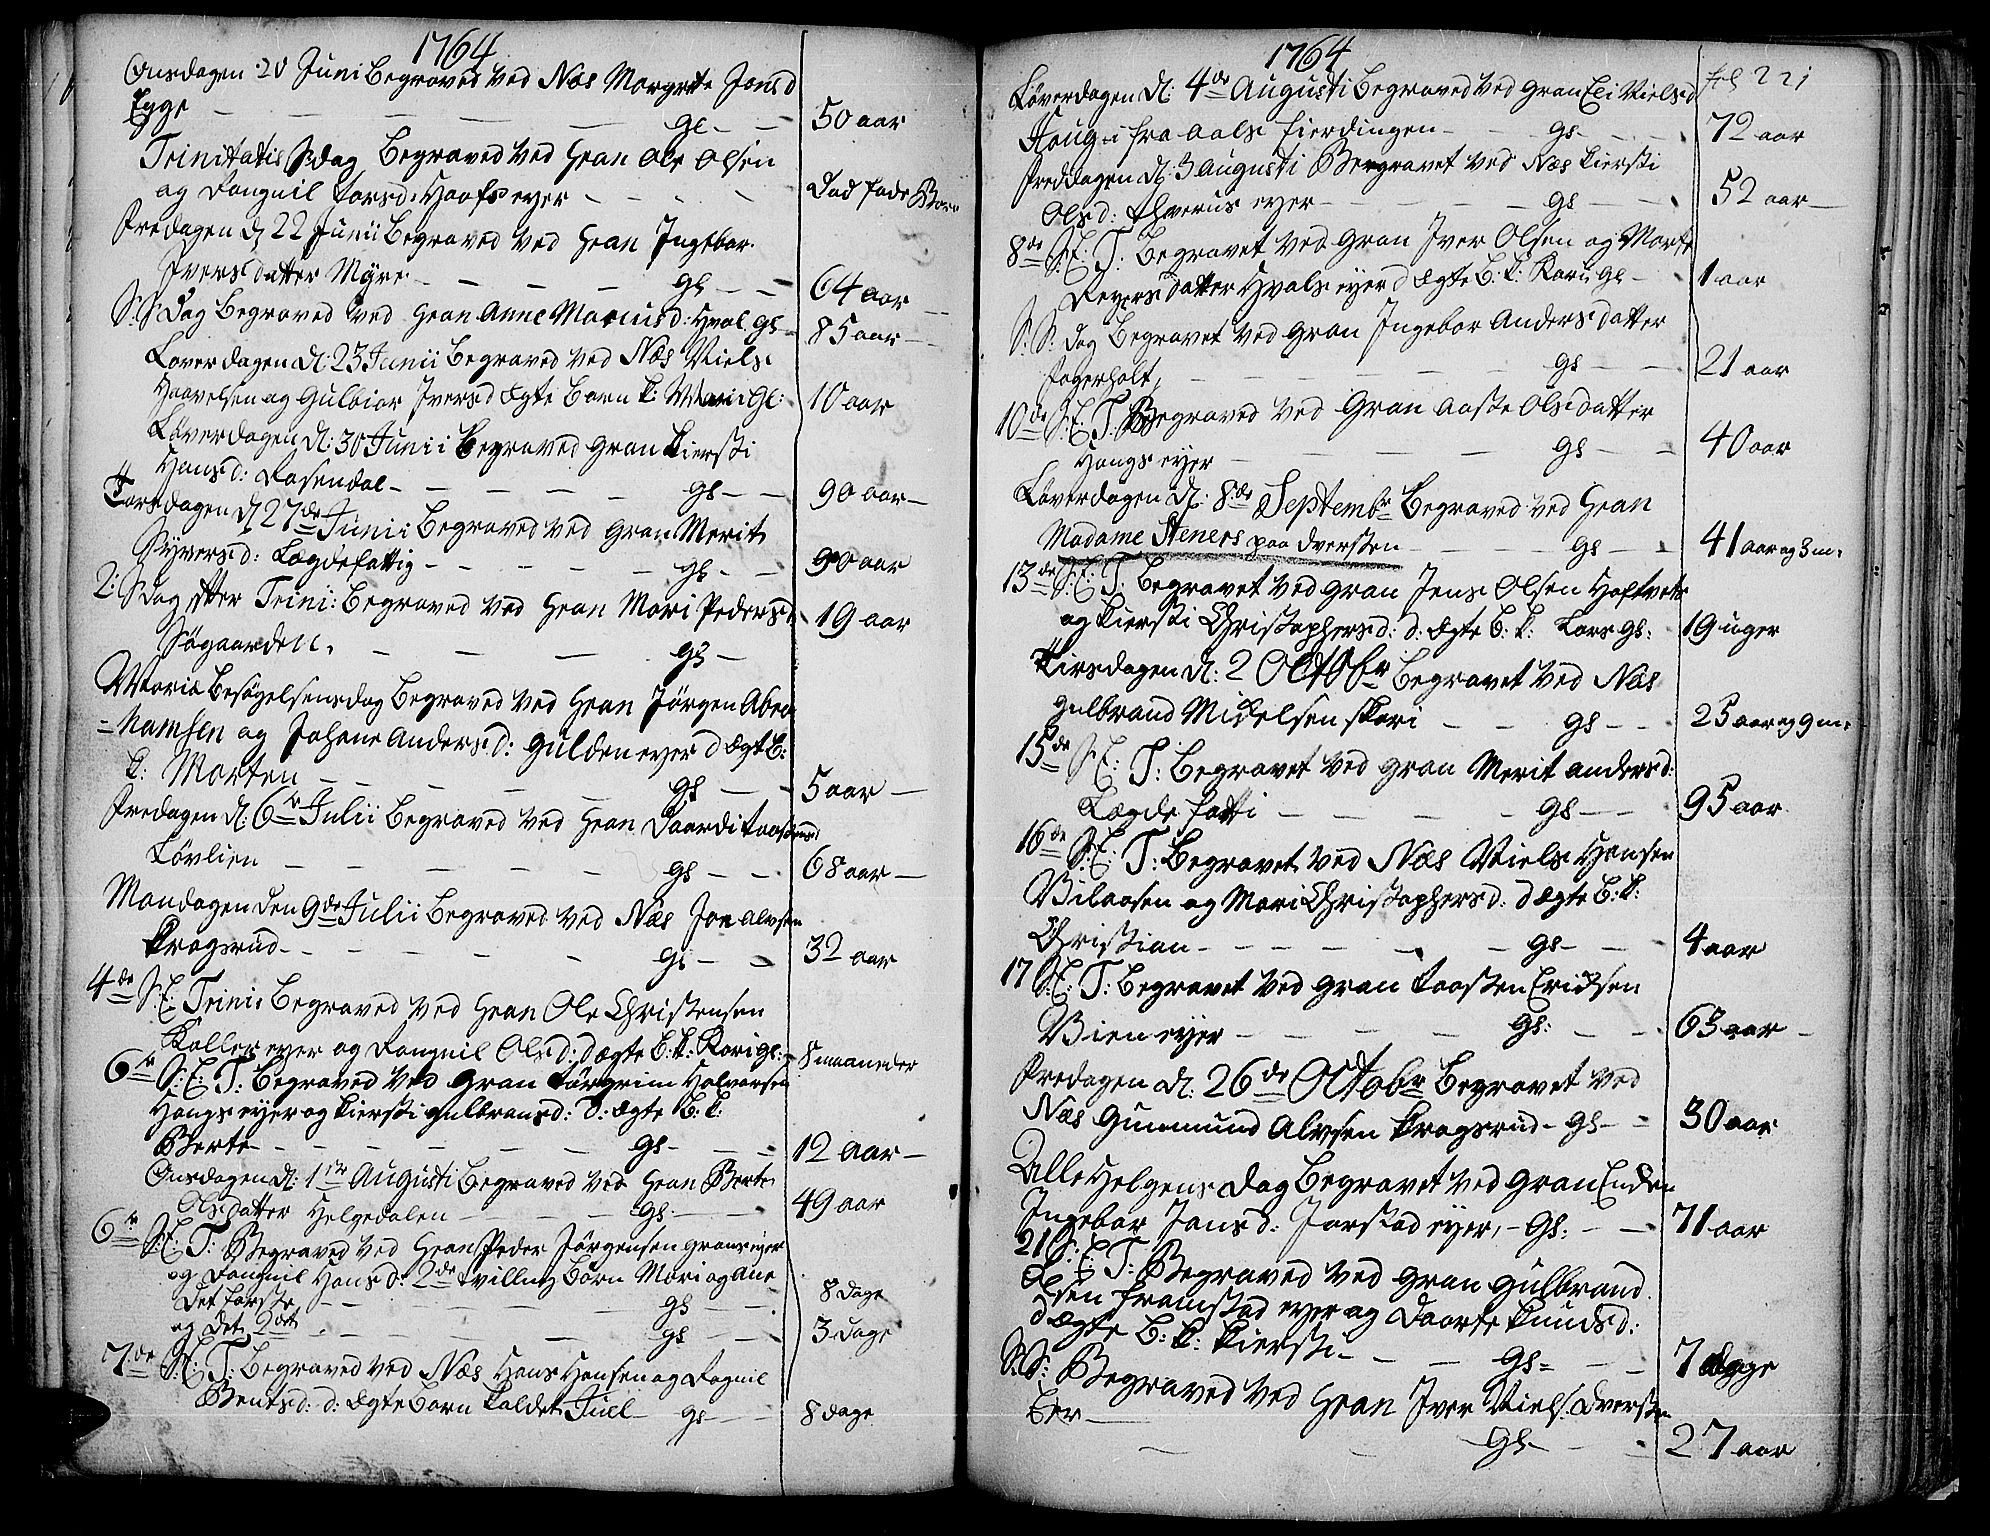 1764
Onsdagen 20 Juni Begraved ved Næs Margrete Jonsd
Egge — — — — — gl — — 50 aar
Trinitatis Sdag Begraved ved Gran Ole Olsen
og Dangnil Larsd: Hoofs eyer — — — Død føde Barn
Fredagen d 22 Junii Begraved ved Gran Ingebor
Iversdatter Myre — — — — gs — — 64 aar
S: S: Dag Begraved ved Gran Anne Mariusd: Hval gs — 85 aar —
Løverdagen d: 23 Junii Begraved ved Næs Niels
Haavelsen og Gulbior Iversd Ægte Barn k: Mari Gl: 10 aar
Løverdagen d: 30 Junii Begraved Gran Kiersti
Hansd: Rosendal — — — — — gs — — 90 aar —
Torsdagen d 27de Junii Begraved ved Gran Merit
Syversd: Lægdefattig — — — — gs — — 90 aar
2: SDag efter Trini: Begraved ved Gran Mari Pedersd
Søgaarden, — — — gs — 19 aar
Mariæ Besøgelsensdag Begraved ved Gran Jörgen Abra
=hamsen og Johane Andersd: Gulden eyer d Ægte B:
k: Morten — — — — — gs — — 5 aar —
Fredagen d: 6te Julii Begraved ved Gran Taardi
Løvlien — — — — — gs — — 68 aar —
Mandagen den 9de Julii Begraved ved Næs Jon Alvsen
Kragsrud — — — — — gs — — 32 aar
4de S: E: Trini: Begraved ved Gran Ole Christensen
Koller eyer og Dangnil Olsd: d ægte B: k: Kari gs: — 8 maaneder
6te S: E: T: Begraved ved Gran Törgrim Halvorsen
Hougs eyer og Kiersti gulbransd: d: ægte B: k:
Berte — — — — — gs — — 12 aar —
Onsdagen d: 1te Augusti Begraved ved Gran Berte
Olsdatter Helgedalen — — — gs — — 49 aar
6te S: E: T: Begraved ved Gran Peder Jörgensen grans eyer
og Dangnil Hansd: 2de tvilling Börn Mari og Ane
Det første, — — — — gs — — 8 dage
og det 2det — — — — gs — — 3 dage
7de S: E: T: Begraved ved Næs Hans Hansen og Dagnil
Bentsd: d: ægte Barn kaldet Juel — gs — — 8 dage
1764
fol 221
Løverdagen d: 4de Augusti Begraved ved Gran Eli Nielsd
Houg i fra Aals fierdingen — — gs — — 72 aar
Freddagen d: 3 Augusti Bergravet ved Næs Kiersti
Olsd: eyer — — — — gs — — 52 aar —
8de S: E: T: Begravet ved Gran Iver Olsen og Marte
Reyersdatter Hvals eyer d ægte B: k: Kari gl — 1 aar
S: S: Dag Begravet ved Gran Ingebor Andersdatter
Fagerholt, — — — — — gs — — 21 aar
10de S: E: T: Begraved ved Gran Aaste Olsdatter
Hougs eyer — — — — — gs — — 40 aar
Løverdagen d: 8de Septembr Begraved ved Gran
Madame Steners paa Dversten — — — gs — — 41 aar og 3 m:
13de S: E: T: Begravet ved Gran Jens Olsen Hoftvets
og Kiersti Christophersd: d: ægte B: k: Lars gs: 19 uger
Tirsdagen d: 2 Octobr Begravet ved Næs
Gulbrand Mickelsen Skari — — gs — — 25 aar og 9 m:
15de S: E: T: Begravet ved Gran Merit Andersd:
Lægde fatti — — — — gs — — 95 aar
16de S: E: T: Begravet ved Næs Niels Hansen
Bilaasen og Mari Christophersd: d ægte B: k:
Christian — — — — — — gs — — 4 aar
17 S: E: T: Begravet ved Gran Taasten Erichsen
Bien eyer — — — — gs: — — 63 aar —
Fredagen d: 26de Octobr Begravet ved
Næs Gunmund Alvsen Kragsrud — gs — — 30 aar
Alle Helgens Dag Begravet ved Gran Enden
Ingebor Jansd: Jorstad eyer, — gs: — — 71 aar
21 S: E: T: Begraved ved Gran Gulbrand
Olsen Framstad eyer og Daarte Knudsd:
d ægte B: k: Kiersti — — — gs = — — 7 dage
S: S: Begraved ved Gran Iver Niels: Dversten
Eer — — — gs — — 27 aar